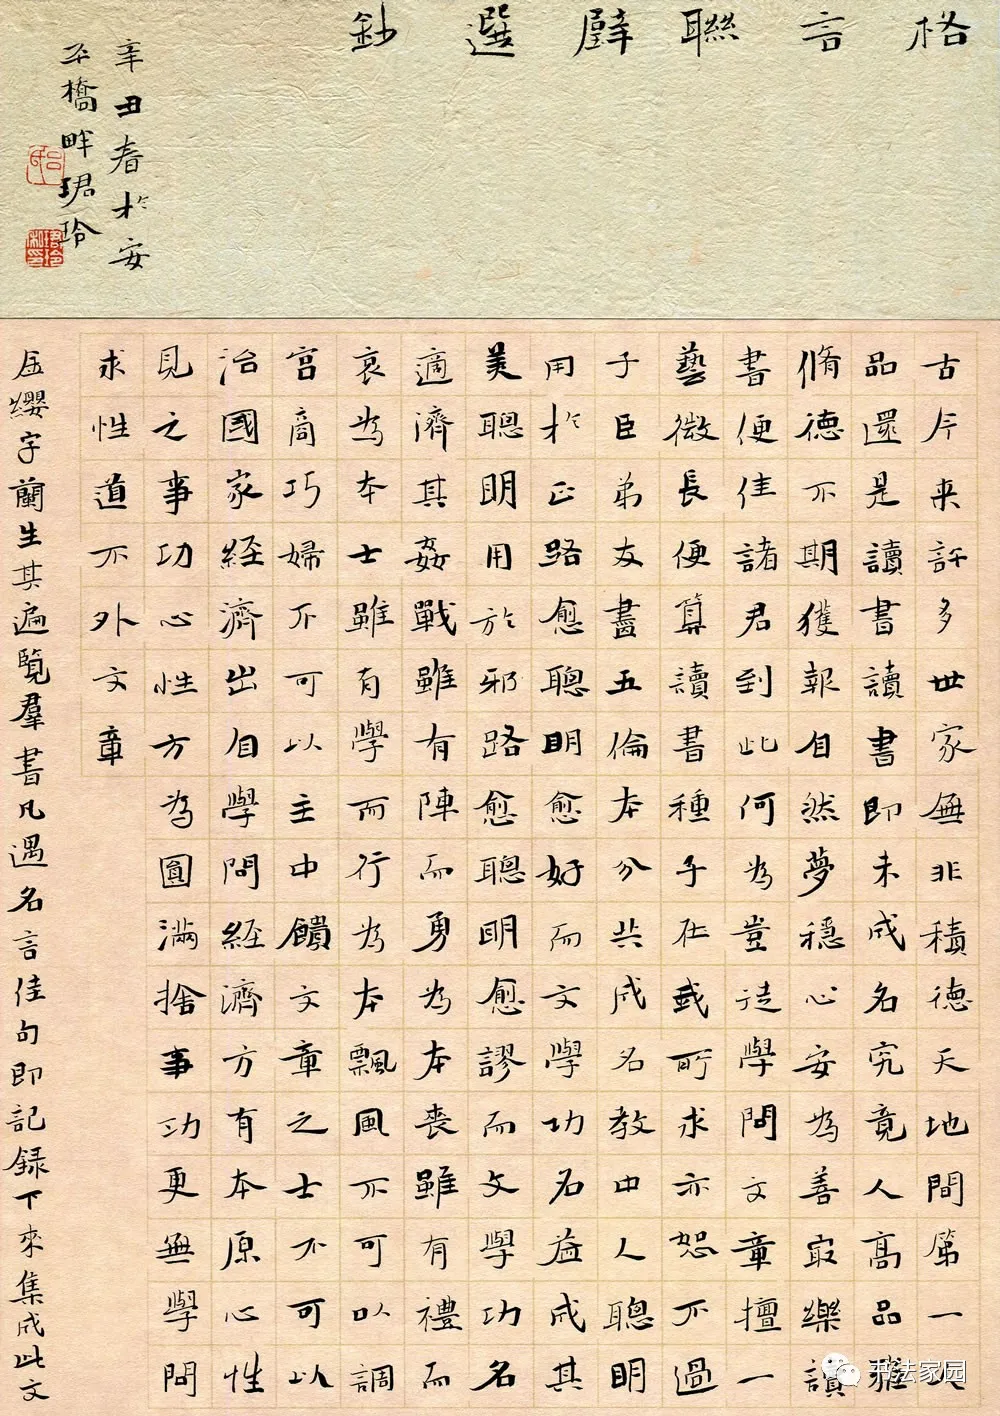 格言聯璧選鈔
古今来許多世家無非積德天地間第一人
品還是讀書讀書即未成名究竟人高品雅
脩德不期獲報自然夢穩心安為善最樂讀
書便佳諸君到此何為豈徒學問文章擅一
藝微長便算讀書種子在我所求亦恕不過
子臣弟友盡五倫本分共成名教中人聰明
用於正路愈聰明愈好而文學功名益成其
美聰明用於邪路愈聰明愈謬而文學功名
適濟其姦戰雖有陣而勇為本喪雖有禮而
哀為本士雖有學而行為本飄風不可以調
宮商巧婦不可以主中饋文章之士不可以
治國家経濟出自學問経濟方有本原心性
見之事功心性方為圓滿捨事功更無學問
求性道不外文章
金纓字蘭生其遍覽羣書凡遇名言佳句即記録下來集成此文
辛丑春於安
平橋畔珺玲
书法家园